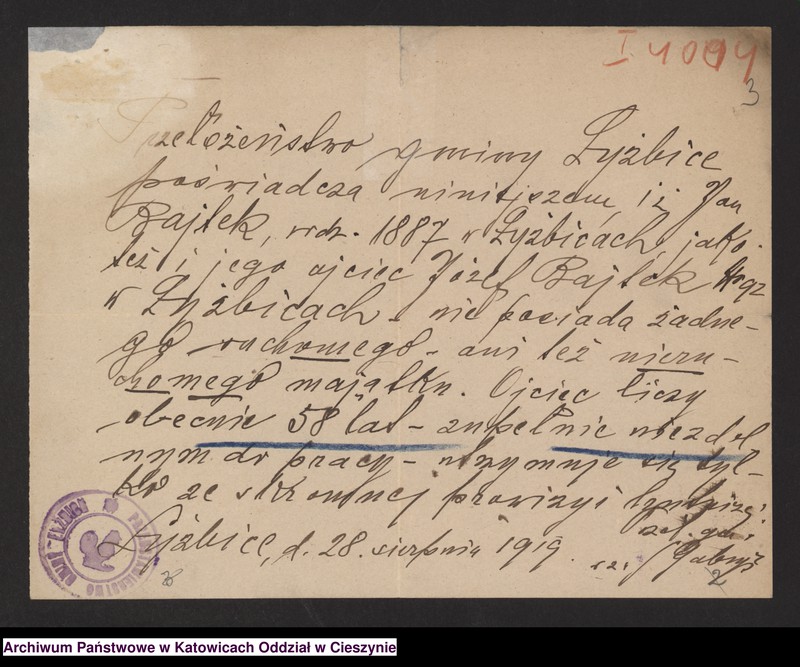 I 4094
3
Przełożeństwo gminy Łyżbice
poświadcza niniejszem, iż Jan
Bajtek, urdz. 1887 w Łyżbicach, jako-
też i jego ojciec Józef Bajtek
w Łyżbicach - nie posiada żadne-
go ruchomego - ani też nieru-
chomego majątku. Ojciec liczy
obecnie 58 lat - zupełnie niezdol
nym do pracy - utrzymuje się tyl-
ko ze skromnej prowizyi
Łyżbice, d. 28. sierpnia 1919.
Gabryś
2
Archiwum Państwowe w Katowicach Oddział w Cieszynie